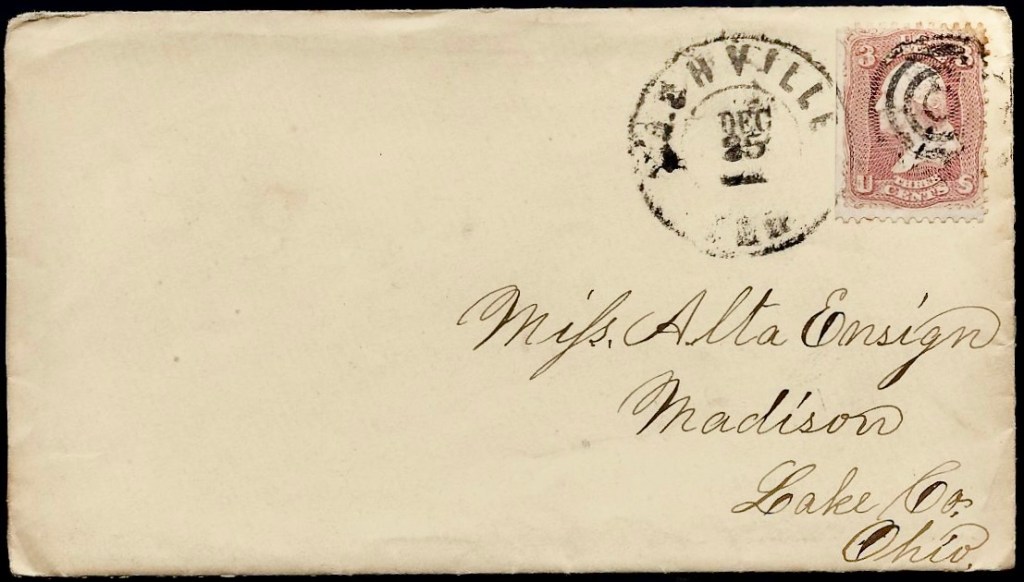 NASHVILLE
DEC
25
TEN
3 U 3
THREE
U CENTS S
Miſs. Alta Ensign
Madison
Lake Co.
Ohio.